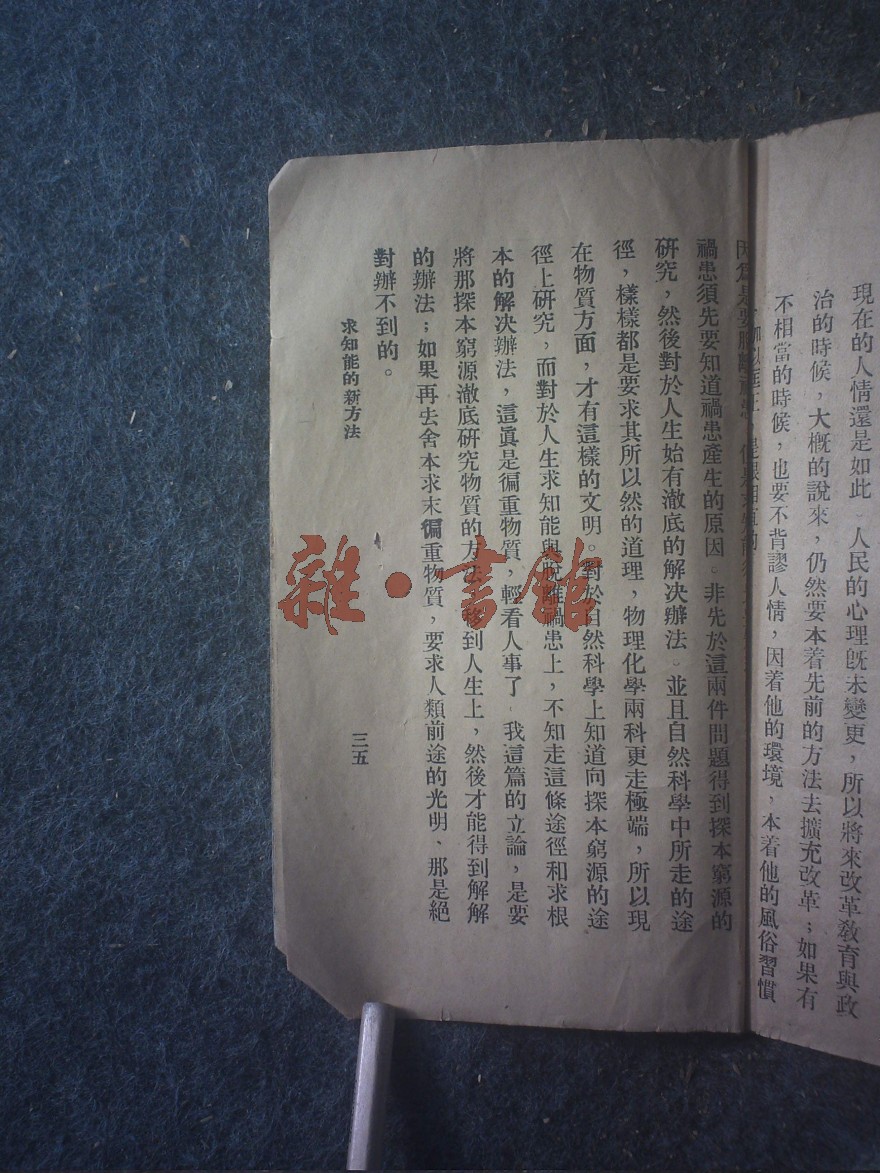 現在的人情還是如此。人民的心理既未變更，所以將來改革教育與政
治的時候，大概的說來，仍然要本着先前的方法去擴充改革；如果有
不相當的時候，也要不背謬人情，因着他的環境，本着他的風俗習慣
因為是要脫離禍患
禍患須先要知道禍患產生的原因。非先於這兩件問題得到探本窮源的
研究，然後對於人生始有澈底的解決辦法。並且自然科學中所走的途
徑，樣樣都是要求其所以然的道理，物理化學兩科更走極端，所以現
在物質方面，才有這樣的文明。對於自然科學上知道向探本窮源的途
徑上研究，而對於人生求知能與脫離禍患上，不知走這條途徑和求根
本的解決辦法，這眞是徧重物質，輕看人事了。我這篇的立論，是要
將那探本窮源澈底研究物質的方法移到人生上，然後才能得到解解
的辦法；如果再去舍本求末徧重物質，要求人類前途的光明、那是絕
對辦不到的。
求知能的新方法
三五
雜·書館